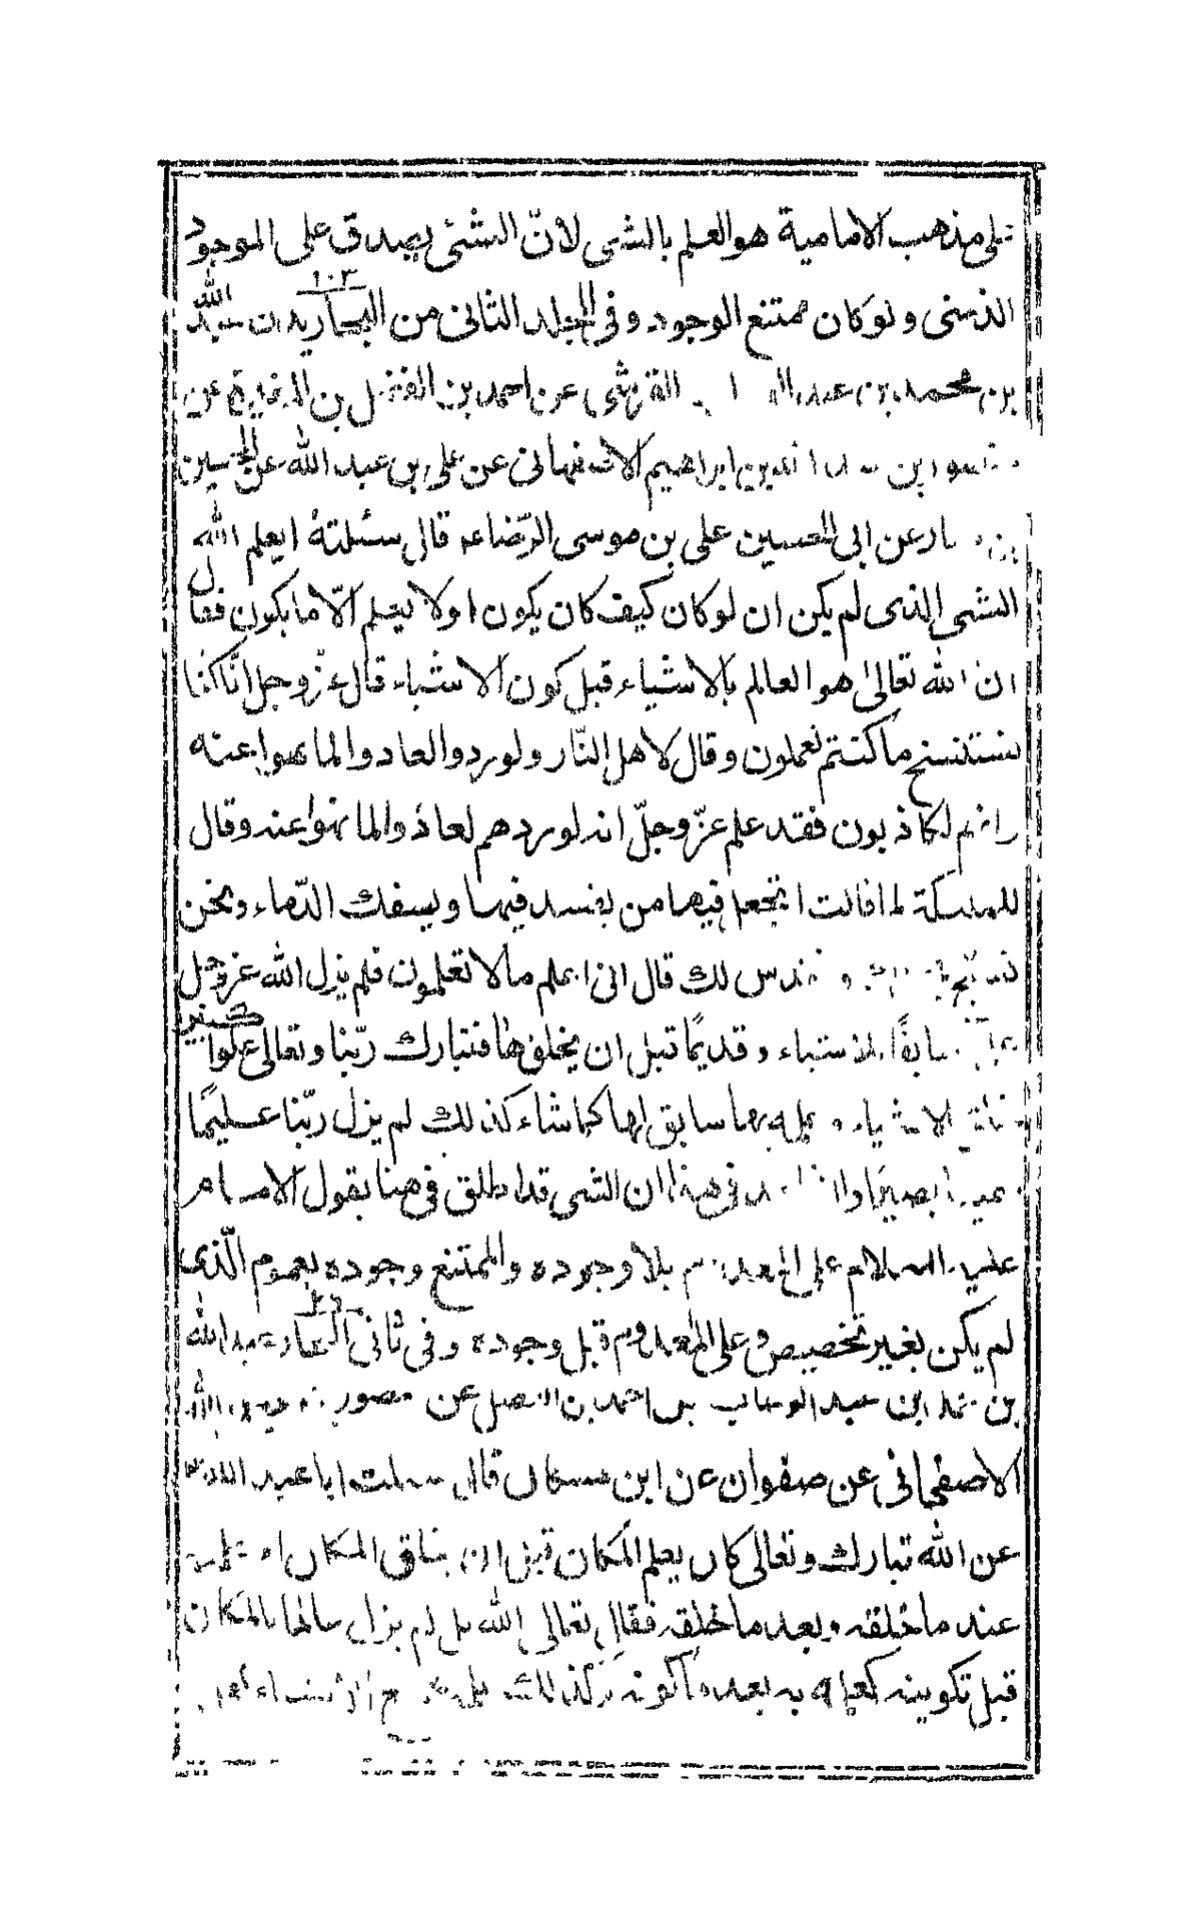 على مذهب الامامية هو العلم بالشى لانّ الشئى يصدق على الموجود
الذهنى ولو كان ممتنع الوجود وفى المجلد الثانى من البحار ١٠٣ عبد الله
بن محمد بن القرشى عن احمد بن الفضل بن المغيرة عن
بن عبد الله بن ابراهيم الاصفهانى عن على بن عبد الله عن الحسين
بن بشار عن ابى الحسين على بن موسى الرّضاء قال سئلته ايعلم الله
الشى الذى لم يكن ان لو كان كيف كان يكون اولا يعلم الّا ما يكون فقال
ان الله تعالى هو العالم بالاشياء قبل كون الاشياء قال عزّ وجل انّا كنّا
نستنسخ ما كنتم تعملون وقال لاهل النّار ولو ردوا لعادوا لما نهوا عنه
وانهم لكاذبون فقد علم عزّ وجلّ انه لو ردهم لعادوا لما نهوا عنه وقال
للملئكة لما قالت اتجعل فيها من يفسد فيها ويسفك الدّماء ونحن
نسبّح ونقدس لك قال انى اعلم ما لا تعلمون فلم يزل الله عزوجل
سابقًا للاشياء وقديمًا قبل ان يخلقها فتبارك ربّنا وتعالى علوا كبيرا
خلق الاشياء وعلمه بها سابق لها كما شاء كذلك لم يزل ربّنا عليمًا
سميعا بصيرًا فى هذا ان الشى قد اطلق فى هنا بقول الامام
عليه السلام على المعدوم بلا وجوده والممتنع وجوده بعموم الّذى
لم يكن بغير تخصيص وعلى المعدوم قبل وجوده وفى ثانى البحار عبد الله
بن محمد بن عبد الوهاب عن احمد بن الفضل عن منصور بن عبد الله
الاصفهانى عن صفوان عن ابن مسكان قال سئلت ابا عبد الله
عن الله تبارك وتعالى كان يعلم المكان قبل ان يخلق المكان ام علمه
عند ما خلقه وبعد ما خلقه فقال تعالى الله بل لم يزل عالما بالمكان
قبل تكوينه كعلمه به بعد ما كونه وكذلك علمه الاشياء